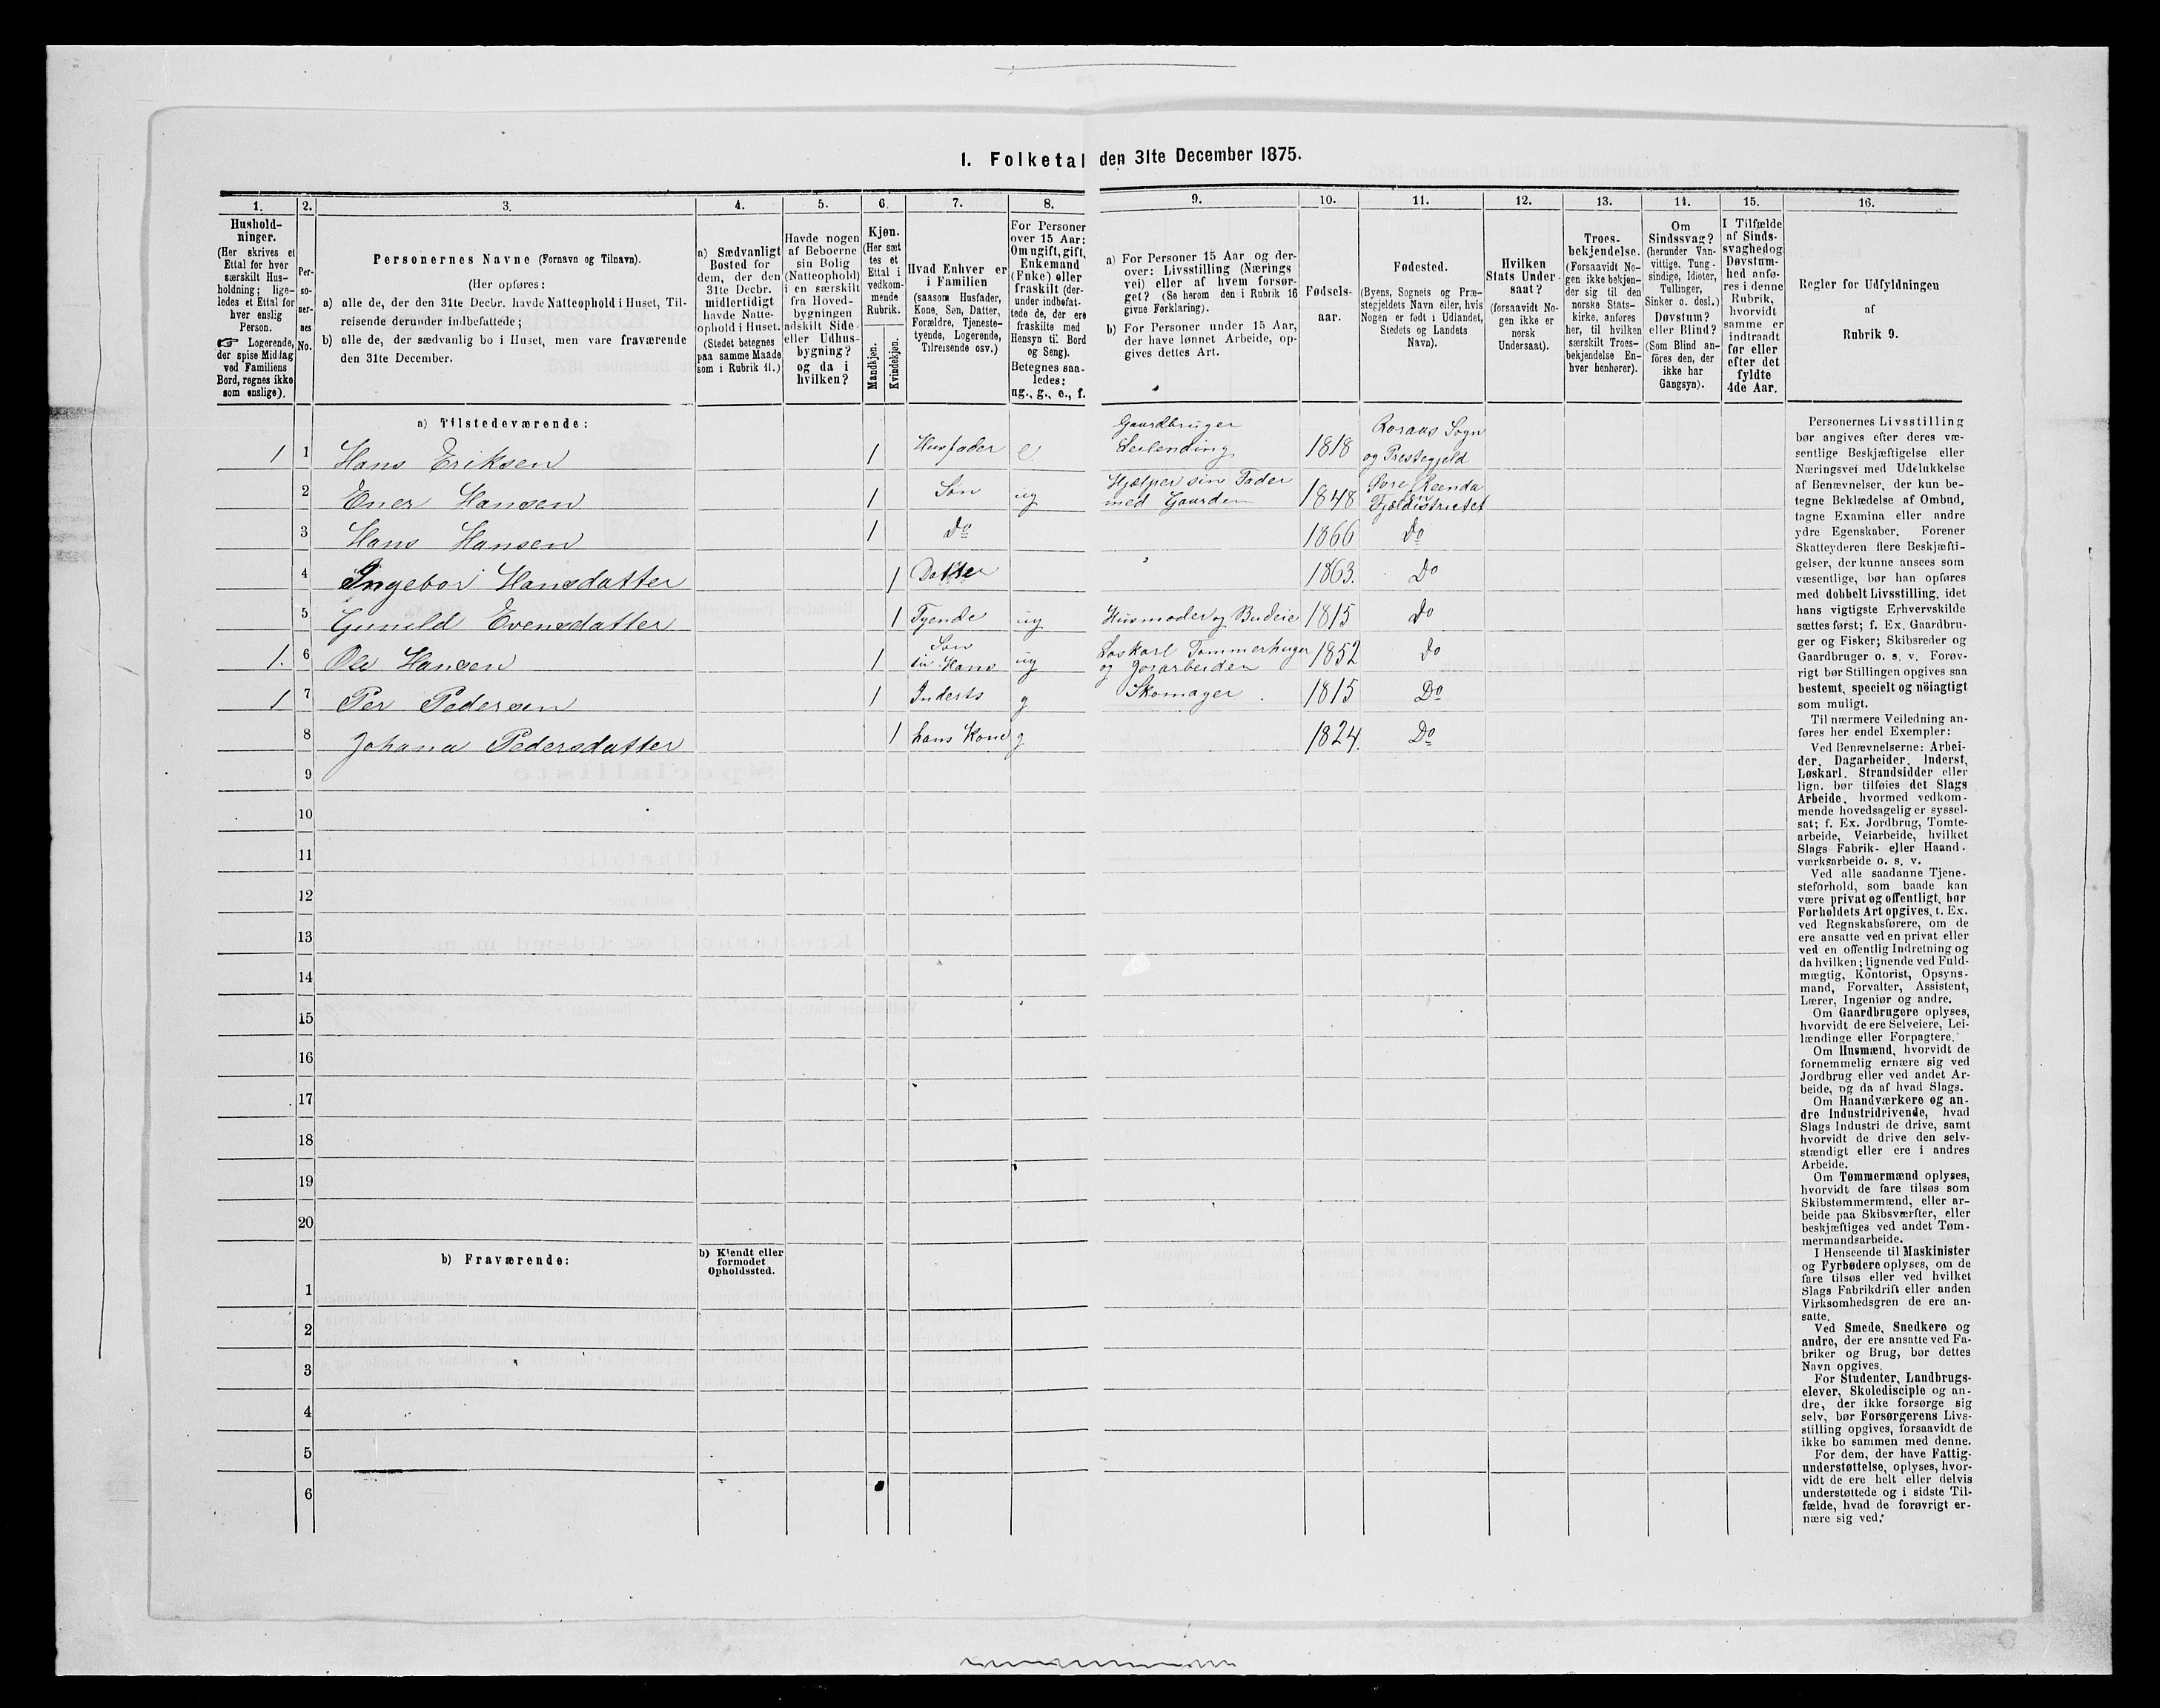 I. Folketal den 31te December 1875.
1.
2.
3.
4.
5.
6.
7.
8.
9.
10.
11.
12.
13.
14.
15.
16.
Hushold-
ninger.
(Her skrives et
Ettal for hver
særskilt Hus-
holdning; lige-
ledes et Ettal for
hver enslig
Person.
☞ Logerende,
der spise Middag
ved Familiens
Bord, regnes ikke
som enslige).
Per-
so-
ner-
nes
No.
Personernes Navne (Fornavn og Tilnavn).
(Her opføres:
a) alle de, der den 31te Decbr. havde Natteophold i Huset, Til-
reisende derunder indbefattede;
b) alle de, der sædvanlig bo i Huset, men vare fraværende
den 31te December.
a) Sædvanligt
Bosted for
dem, der den
31te Decbr.
midlertidigt
havde Natte-
ophold i Huset.
(Stedet betegnes
paa samme Maade
som i Rubrik 11.)
Havde nogen
af Beboerne
sin Bolig
(Natteophold)
i en særskilt
fra Hoved-
bygningen
adskilt Side-
eller Udhus-
bygning?
og da i
hvilken?
Kjøn.
(Her sæt
tes et
Ettal i
vedkom-
mende
Rubrik.
Mandkjøn.
Kvindekjøn.
Hvad Enhver er
i Familien
(saasom Husfader,
Kone, Søn, Datter,
Forældre, Tjeneste-
tyende, Logerende,
Tilreisende osv.)
For Personer
over 15 Aar:
Om ugift, gift,
Enkemand
(Enke) eller
fraskilt (der-
under indbefat-
tede de, der ere
fraskilte med
Hensyn til Bord
og Seng).
Betegnes saa-
ledes:
ug., g., e., f.
a) For Personer 15 Aar og der-
over: Livsstilling (Nærings
vei) eller af hvem forsør-
get? (Se herom den i Rubrik 16
givne Forklaring).
b) For Personer under 15 Aar,
der have lønnet Arbeide, op-
gives dettes Art.
Fødsels-
aar.
Fødested.
(Byens, Sognets og Præ-
stegjeldets Navn eller, hvis
Nogen er født i Udlandet,
Stedets og Landets
Navn).
Hvilken
Stats Under-
saat?
(forsaavidt No-
gen ikke er
norsk
Undersaat).
Troes-
bekjendelse.
(Forsaavidt No-
gen ikke bekjen-
der sig til den
norske Stats-
kirke, anføres
her, til hvilken
særskilt Troes-
bekjendelse En-
hver henhører).
Om
Sindssvag?
(herunder Van-
vittige, Tung-
sindige, Idioter,
Tullinger,
Sinker o. desl.)
Døvstum?
eller Blind?
(Som Blind an-
føres den, der
ikke har
Gangsyn).
I Tilfælde
af Sinds-
svaghed og
Døvstum-
hed anfø-
res i denne
Rubrik,
hvorvidt
samme er
indtraadt
før eller
efter det
fyldte
4de Aar.
Regler for Udfyldningen
af
Rubrik 9.
a) Tilstedeværende:
1 1 Hans Eriksen 1 Husfader e Gaardbruger Leilending 1818 Roraas Sogn og Prestegjeld
2 Ener Hansen 1 Søn ug Hjælper sin Fader med Gaarden 1848 Fjældistrictet
3 Hans Hansen 1 Do 1866 Do
4 Ingebor Hansdatter 1 Datter 1863. Do
5 Gunild Evensdatter 1 Tyende ug Husmoder og Budeie 1815 Do
1. 6 Ole Hansen 1 Søn til Hans ug Løskarl Tømmerhuger og Jorarbeider 1852 Do
1 7 Per Pedersen 1 Inderts g Skomager 1815 Do
8 Johana Pedersdatter 1 hans Kone g 1824. Do
9
10
11
12
13
14
15
16
17
18
19
20
b) Fraværende:
b) Kjendt eller
formodet
Opholdssted.
1
2
3
4
5
6
Personernes Livsstilling
bør angives efter deres væ-
sentlige Beskjæftigelse eller
Næringsvei med Udelukkelse
af Benævnelser, der kun be-
tegne Beklædelse af Ombud,
tagne Examina eller andre
ydre Egenskaber. Forener
Skatteyderen flere Beskjæfti-
gelser, der kunne ansees som
væsentlige, bør han opføres
med dobbelt Livsstilling, idet
hans vigtigste Erhvervskilde
sættes først; f. Ex. Gaardbru-
ger og Fisker; Skibsreder og
Gaardbruger o. s. v. Forøv-
rigt bør Stillingen opgives saa
bestemt, specielt og nöiagtigt
som muligt.
Til nærmere Veiledning an-
føres her endel Exempler:
Ved Benævnelserne: Arbei-
der, Dagarbeider, Inderst,
Løskarl, Strandsidder eller
lign. bør tilføies det Slags
Arbeide, hvormed vedkom-
mende hovedsagelig er syssel-
sat; f. Ex. Jordbrug, Tomte-
arbeide, Veiarbeide, hvilket
Slags Fabrik- eller Haand-
værksarbeide o. s. v.
Ved alle saadanne Tjene-
steforhold, som baade kan
være privat og offentligt, bør
Forholdets Art opgives, t. Ex.
ved Regnskabsførere, om de
ere ansatte ved en privat eller
ved en offentlig Indretning og
da hvilken; lignende ved Fuld-
mægtig, Kontorist, Opsyns-
mand, Forvalter, Assistent,
Lærer, Ingeniør og andre.
Om Gaardbrugere oplyses,
hvorvidt de ere Selveiere, Lei-
lændinge eller Forpagtere.
Om Husmænd, hvorvidt de
fornemmelig ernære sig ved
Jordbrug eller ved andet Ar-
beide, og da af hvad Slags.
Om Haandværkere og an-
dre Industridrivende, hvad
Slags Industri de drive, samt
hvorvidt de drive den selv-
stændigt eller ere i andres
Arbeide.
Om Tømmermænd oplyses,
hvorvidt de fare tilsøs som
Skibstømmermænd, eller ar-
beide paa Skibsværfter, eller
beskjæftiges ved andet Tøm-
mermandsarbeide.
I Henseende til Maskinister
og Fyrbødere oplyses, om de
fare tilsøs eller ved hvilket
Slags Fabrikdrift eller anden
Virksomhedsgren de ere an-
satte.
Ved Smede, Snedkere og
andre, der ere ansatte ved Fa-
briker og Brug, bør dettes
Navn opgives.
For Studenter, Landbrugs-
elever, Skoledisciple og an-
dre, der ikke forsørge sig
selv, bør Forsørgerens Livs-
stilling opgives, forsaavidt de
ikke bo sammen med denne.
For dem, der have Fattig-
understøttelse, oplyses, hvor-
vidt de ere helt eller delvis
understøttede og i sidste Til-
fælde, hvad de forøvrigt er-
nære sig ved.